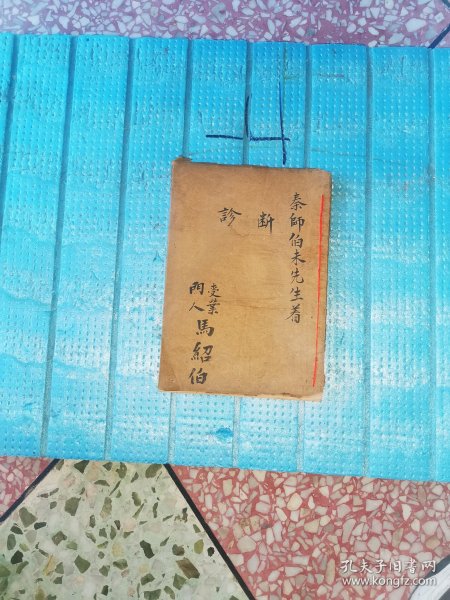 秦師伯未先生着
診斷
受業
門人馬紹伯
孔夫子旧书网
www.kongfz.com